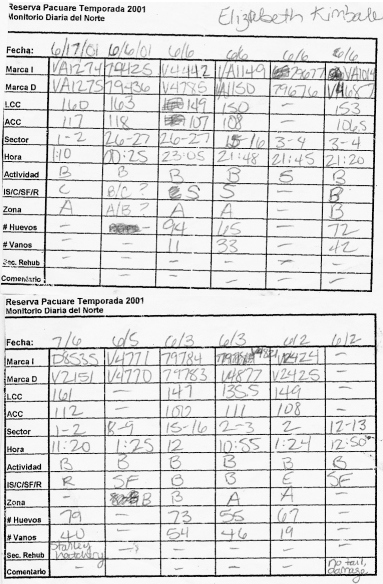 Reserva Pacuare Temporada 2001
Monitorio Diaria del Norte
Elizabeth Kimbale
Fecha: 6/17/01 6/6/01 6/6 6/6 6/6 6/6
Marca I VA1274 79425 V4442 VA1149 73677
Marca D VA1275 79436 V4785 A1150 79676
LCC 160 163 149 150 - 153
ACC 117 118 107 108 - 106.5
Sector 1-2 26-27 26-27 15-16 3-4 3-4
Hora 1:10 00:25 23:05 21:48 21:45 21:20
Actividad B B B B S B
IS/C/SF/R C B/C? S S - B
Zona A A/B? A A - B
# Huevos - 94 45 - 72
# Vanos - - 11 33 - 42
Sec. Rehub - - - - - -
Comentario - - - - -
Reserva Pacuare Temporada 2001
Monitorio Diaria del Norte
Fecha: 7/6 6/5 6/3 6/3 6/2 6/2
Marca I D8535 V4771 79784 V2424 -
Marca D V2151 V4770 79783 V4877 V2425 -
LCC 161 - 147 135.5 149 -
ACC 112 - 101.2 111 108 -
Sector 1-2 8-9 15-16 2-3 2 12-13
Hora 11:20 1:25 12 10:55 1:24 12:50
Actividad B B B B B B
IS/C/SF/R R SF B B E SF
Zona - B B A A -
# Huevos 79 - 73 55 67 -
# Vanos 40 - 54 46 19 -
Sec. Rehub Stanley hatchery
Comentario - - - - - no tail, damage